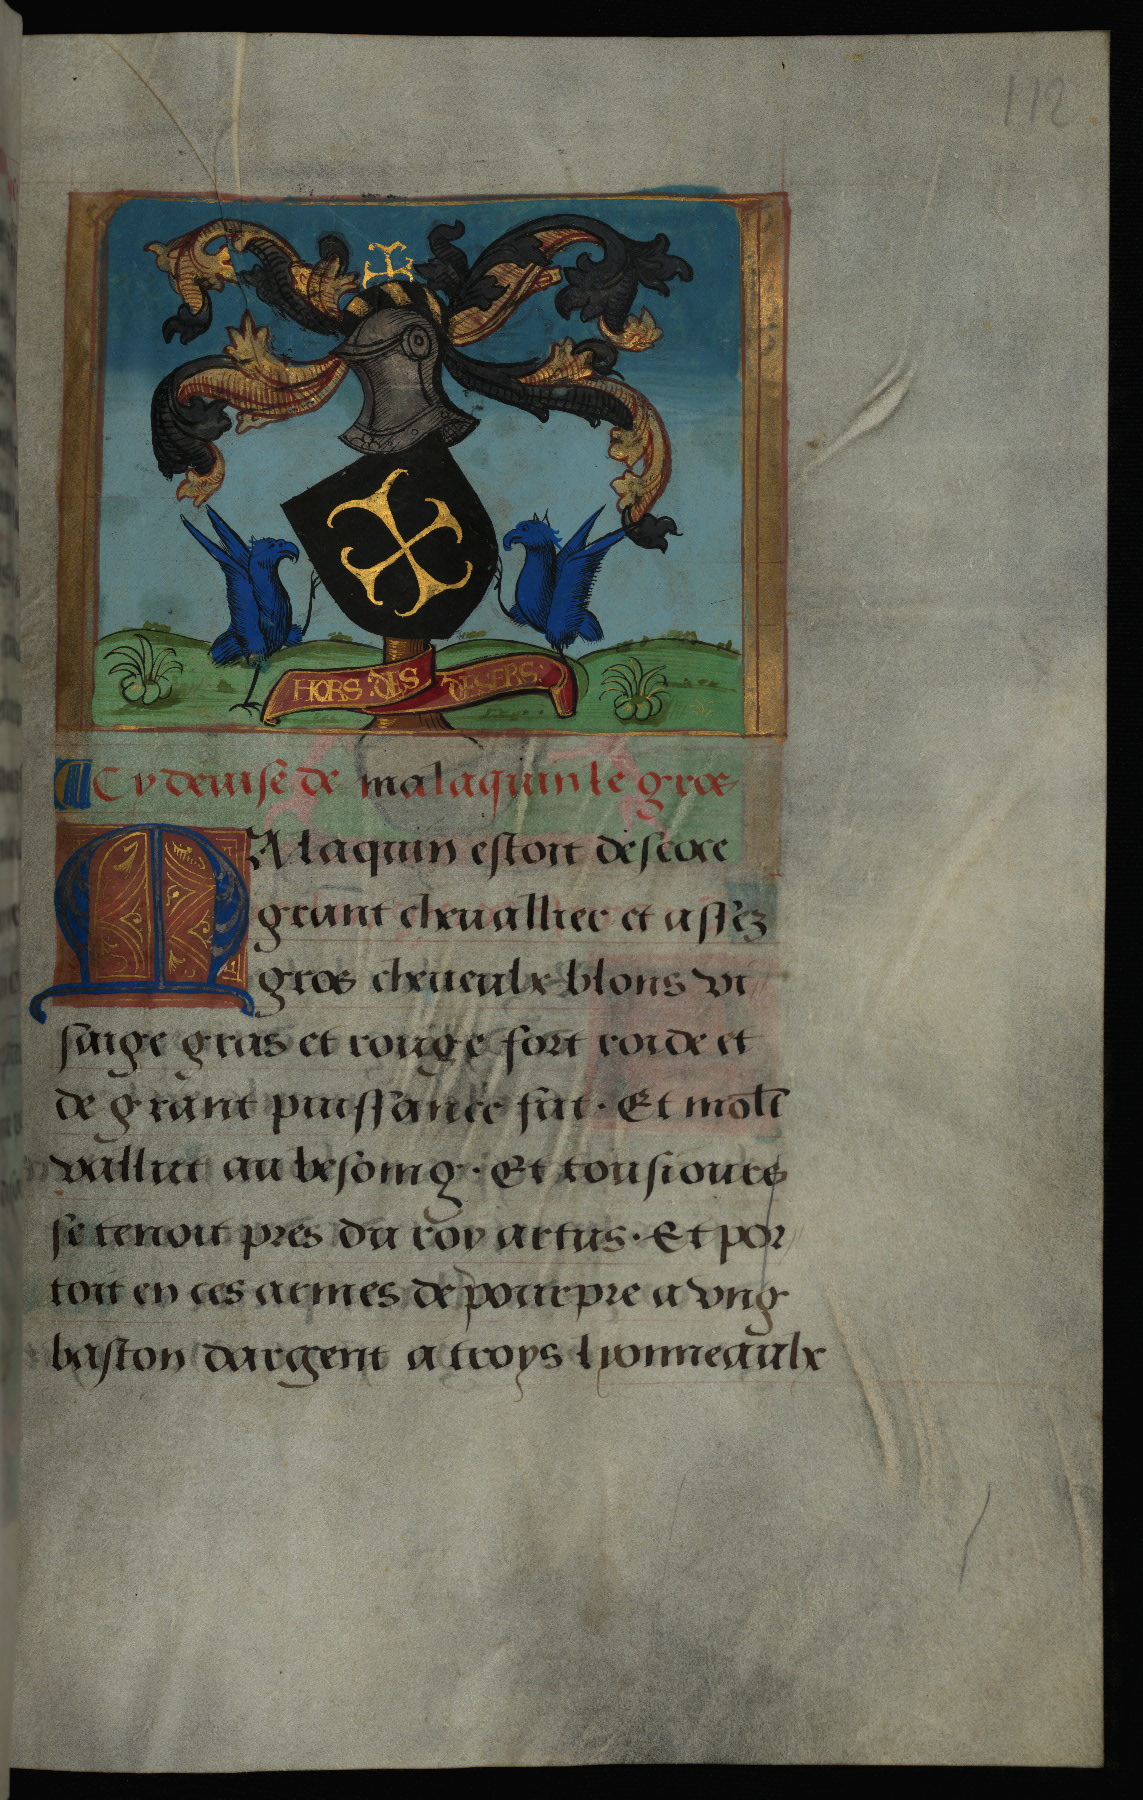 112
HORS DES DESERS
Cy deuise de malaquin le gros
Malaquin estoit de score
grant cheuallier et assez
gros cheueulx blons vi
saige gras et rouge fort roide et
de grant puissance fut. Et molt
valliut au besoing. Et tousiours
se tenoit pres du roy artus. Et por
toit en ces armes de pourpre a vng
baston dargent a troys lyonneaulx